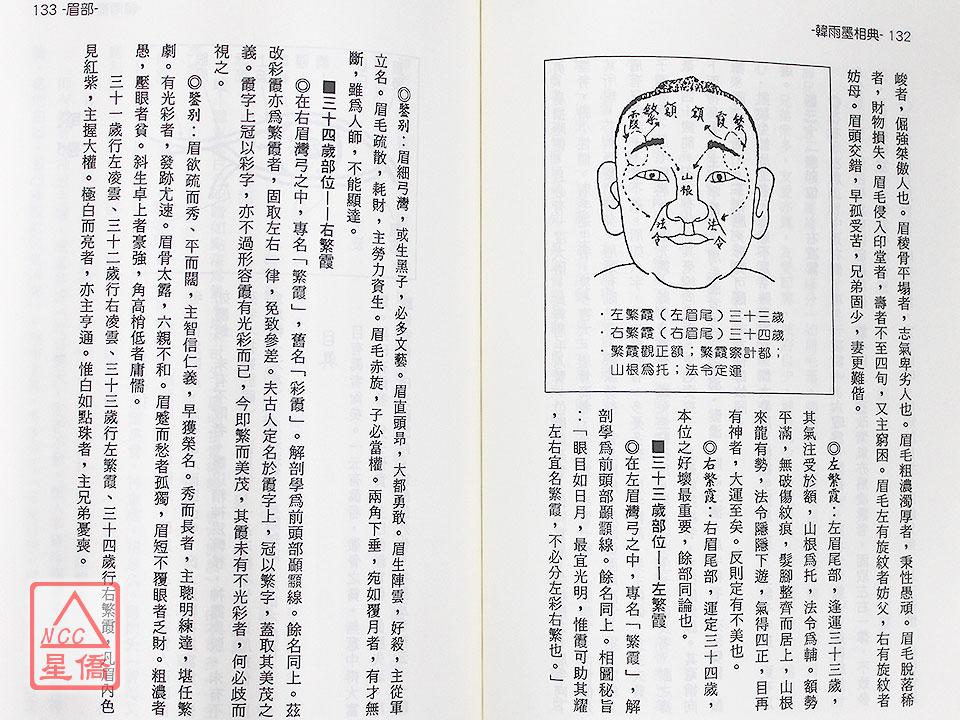 -韓雨墨相典- 132
峻者，倔強桀傲人也。眉稜骨平塌者，志氣卑劣人也。眉毛粗濃濁厚者，秉性愚頑。眉毛脫落稀
者，財物損失。眉毛侵入印堂者，壽者不至四旬，又主窮困。眉毛左有旋紋者妨父，右有旋紋者
妨母。眉頭交錯，早孤受苦，兄弟固少，妻更難偕。
繁霞
額
額
繁霞
山根
法令
法令
．左繁霞（左眉尾）三十三歲
．右繁霞（右眉尾）三十四歲
．繁霞觀正額；繁霞察計都；
山根為托；法令定運
◎左繁霞：左眉尾部，逢運三十三歲，
其氣注受於額，山根為托，法令為輔。額勢
平滿，無破傷紋痕，髮腳整齊而居上，山根
來龍有勢，法令隱隱下遊，氣得四正，目再
有神者，大運至矣。反則定有不美也。
◎右繁霞：右眉尾部，運定三十四歲，
本位之好壞最重要，餘部同論也。
■三十三歲部位——左繁霞
◎在左眉灣弓之中，專名「繁霞」，解
剖學為前頭部顳顬線。餘名同上。相圖秘旨
：「眼目如日月，最宜光明，惟霞可助其耀
，左右宜名繁霞，不必分左彩右繁也。」
133 -眉部-
◎鑒別：眉細弓灣，或生黑子，必多文藝。眉直頭昂，大都勇敢。眉生陣雲，好殺，主從軍
立名。眉毛疏散，耗財，主勞力資生。眉毛赤旋，子必當權。兩角下垂，宛如覆月者，有才無
斷，雖為人師，不能顯達。
■三十四歲部位——右繁霞
◎在右眉灣弓之中，專名「繁霞」，舊名「彩霞」。解剖學為前頭部顳顬線。餘名同上。茲
改彩霞亦為繁霞者，固取左右一律，免致參差。夫古人定名於霞字上，冠以繁字，蓋取其美茂之
義。霞字上冠以彩字，亦不過形容霞有光彩而已，今即繁而美茂，其霞未有不光彩者，何必歧而
視之。
◎鑒別：眉欲疏而秀、平而闊，主智信仁義，早獲榮名。秀而長者，主聰明練達，堪任繁
劇。有光彩者，發跡尤速。眉骨太露，六親不和。眉蹙而愁者孤獨，眉短不覆眼者乏財。粗濃者
愚，壓眼者貧。斜生卓上者豪強，角高梢低者庸懦。
三十一歲行左凌雲、三十二歲行右凌雲、三十三歲行左繁霞、三十四歲行右繁霞，凡眉內色
見紅紫，主握大權。極白而亮者，亦主亨通。惟白如點珠者，主兄弟憂喪。
NCC
星僑